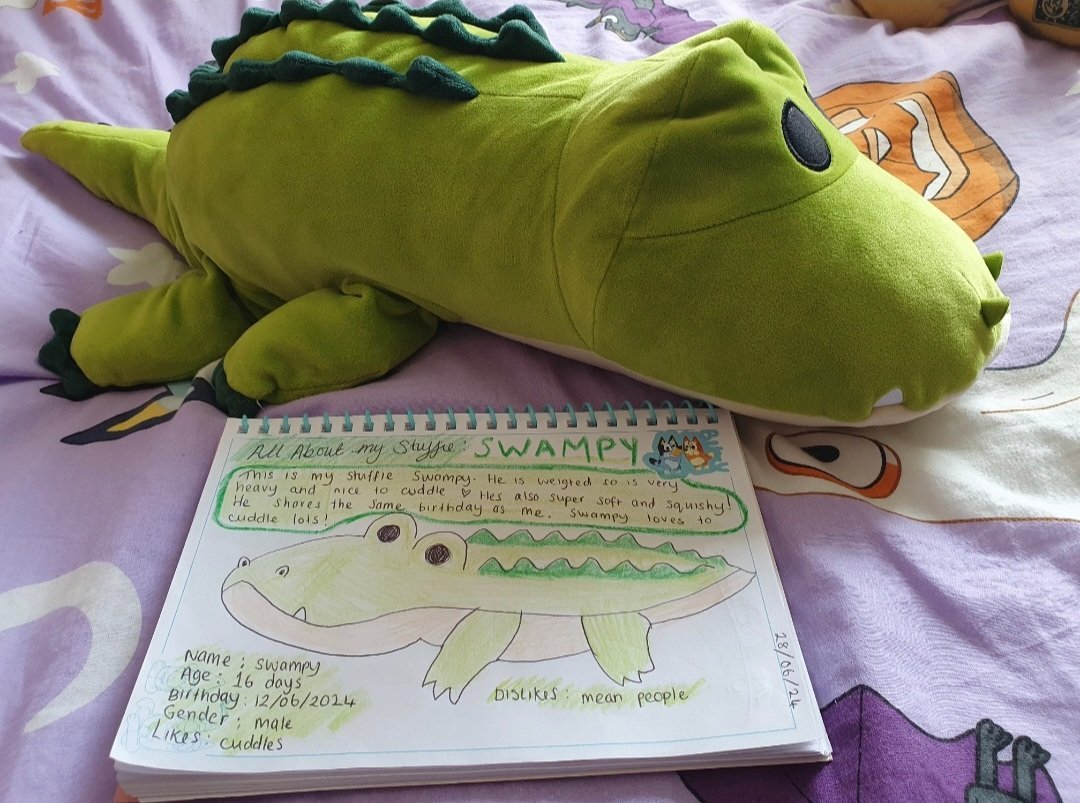 All About my Stuffie: SWAMPY
This is my stuffie Swampy. He is weigted so is very
heavy and nice to cuddle ♡ Hes also super soft and squishy!
He shares the same birthday as me. Swampy loves to
cuddle lots!
Name: Swampy
Age: 16 days
Birthday: 12/06/2024
Gender: male
Likes: cuddles
Dislikes: mean people
28/06/24